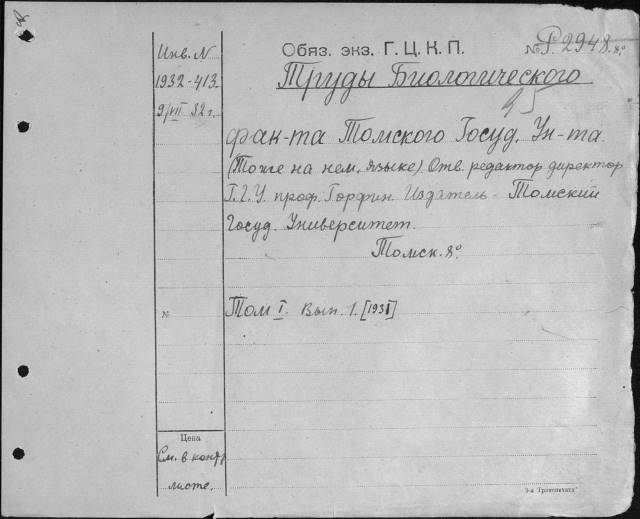 Инв. N
1932-413
9/VII 32 г.
Обяз. экз. Г.Ц.К.П.
№ Р.2948. 8°
Труды Биологического
45
фак-та Томского Госуд. Ун-та.
(Тоже на нем. языке). Отв. редактор директор
Т.Г.У. проф. Горфин. Издатель - Томский
Госуд. Университет.
Томск. 8°
№
Том I. Вып. 1. [1931]
Цена
См. в контр.
листе.